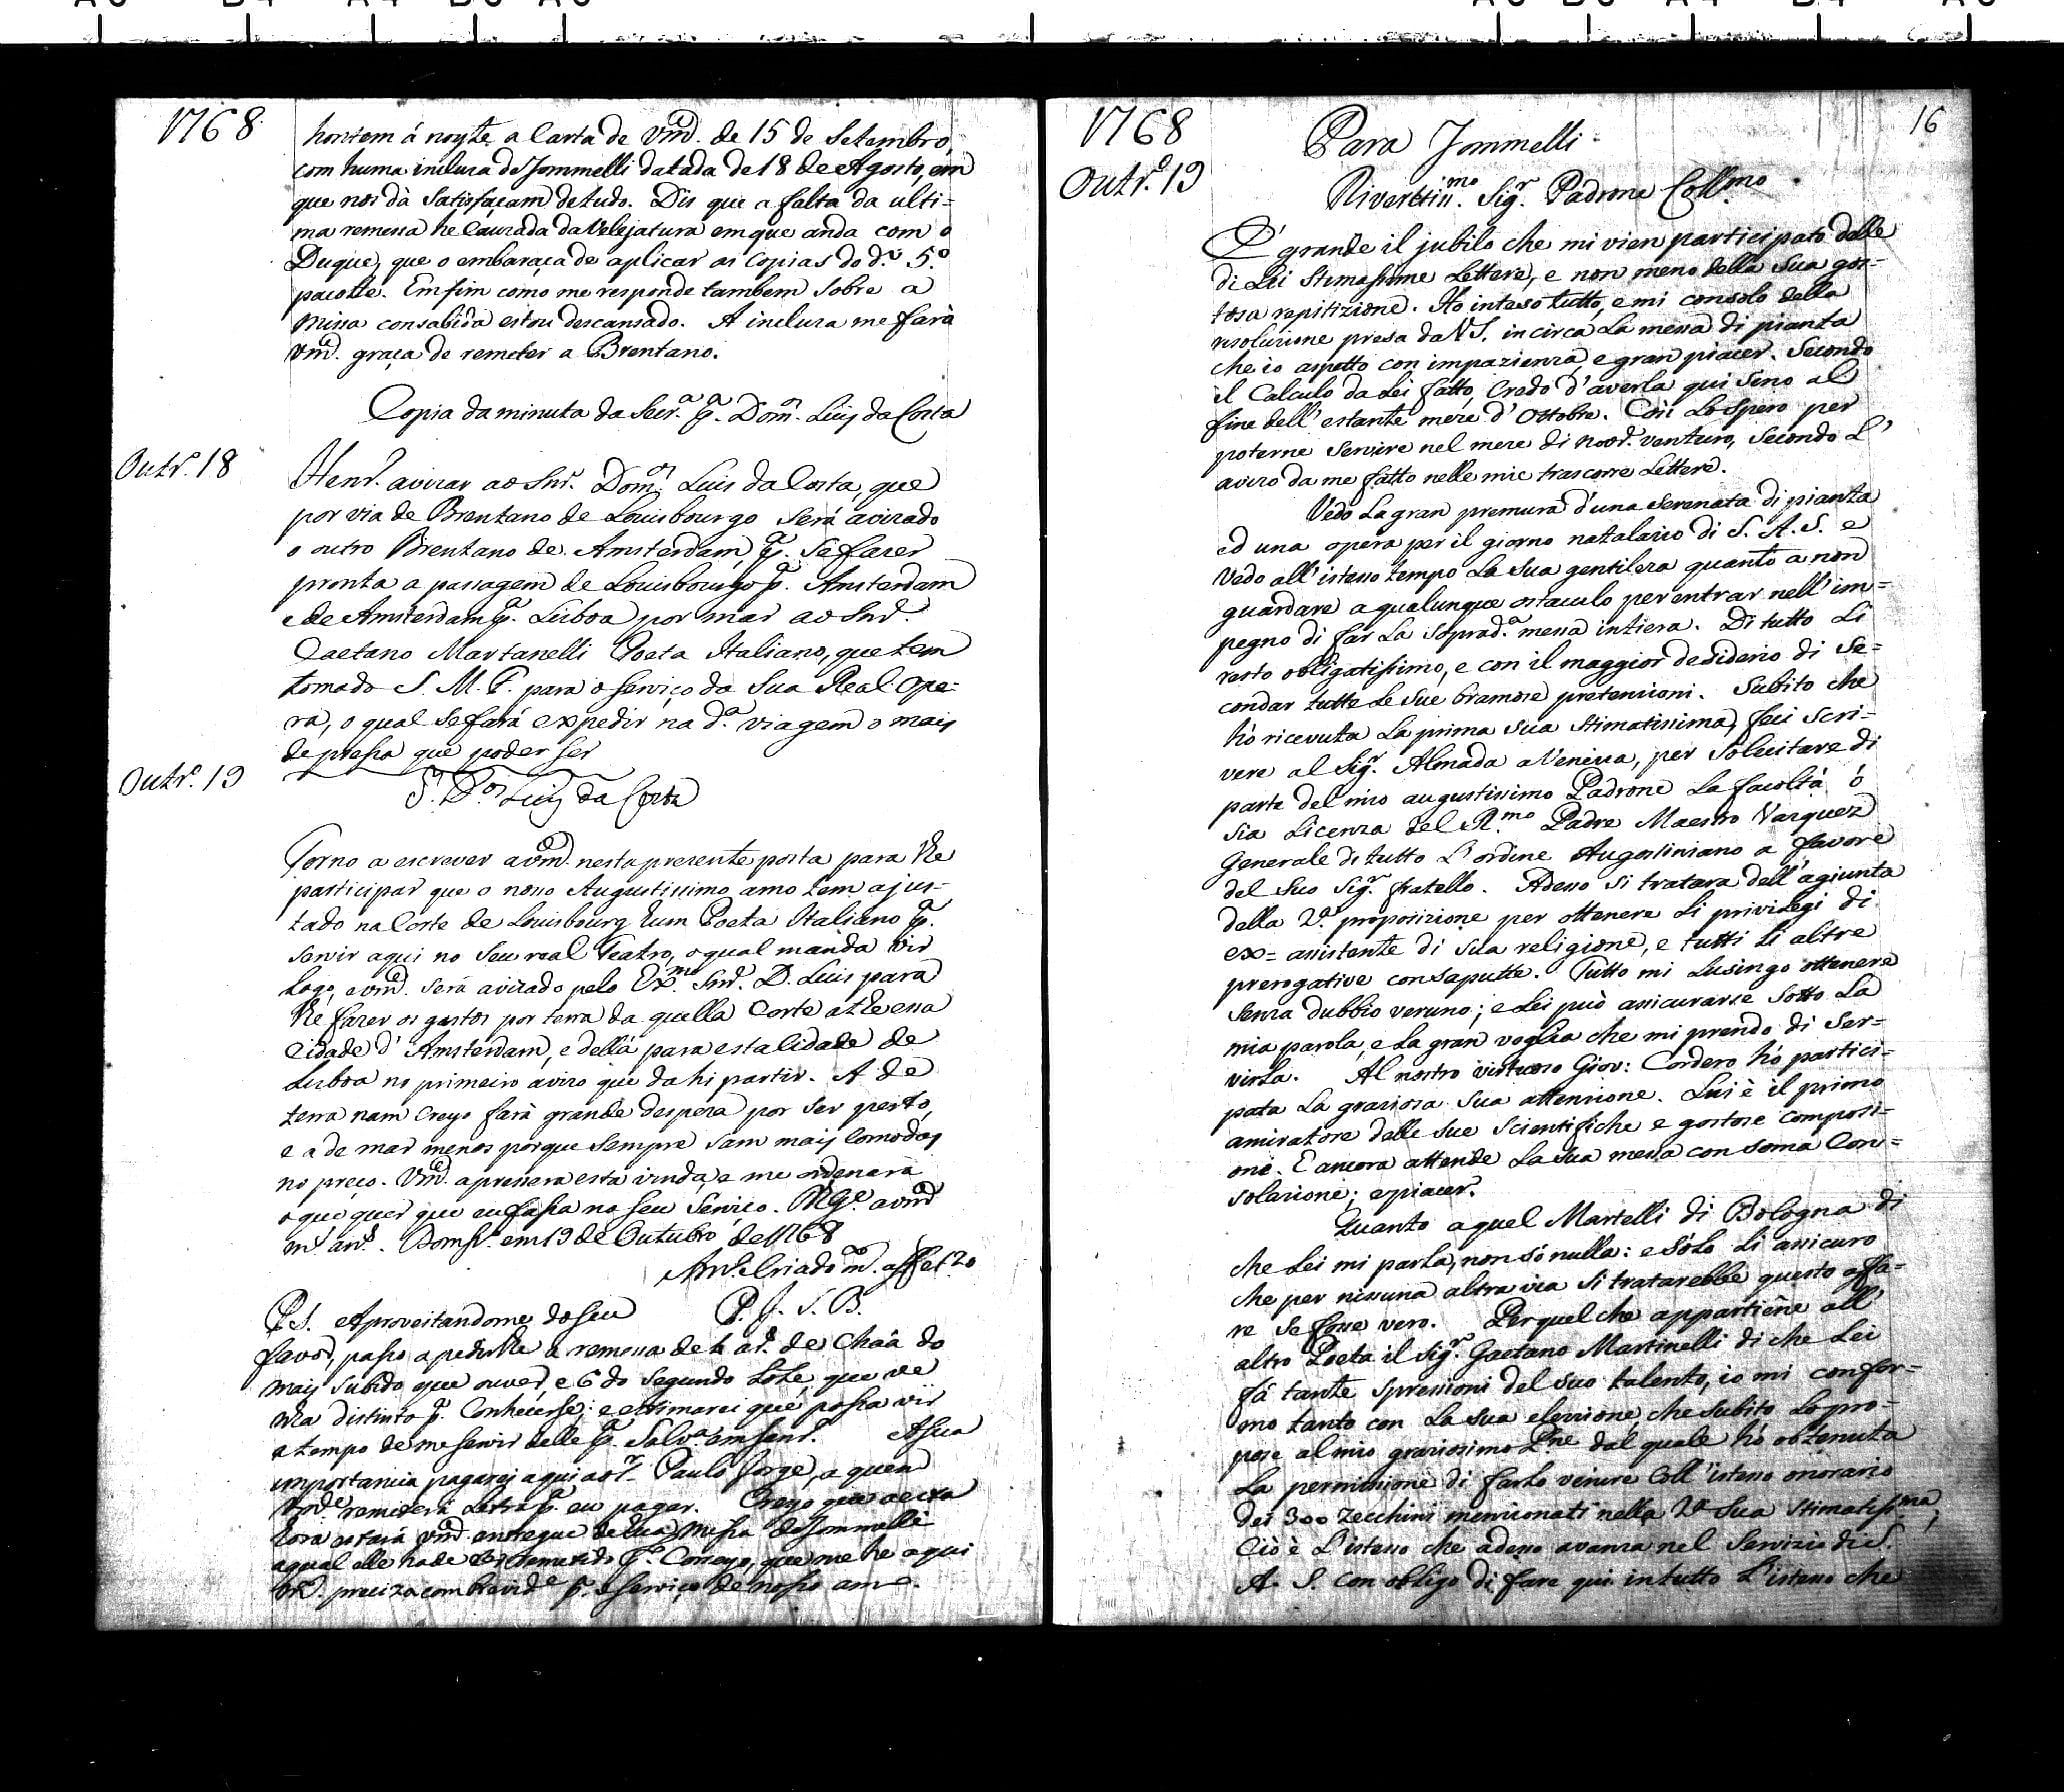 1768
hontem á noyte a Carta de Vmd. de 15 de Setembro,
com huma incluza de Jommelli datada de 18 de Agosto, em
que nos dà Satisfaçam de tudo. Dis que a falta da ulti=
ma remessa hé Cauzada da Velejatura em que anda com o
Duque, que o embaraça de aplicar as Copias do d.º 5.º
pacotte. Emfim como me responde tambem Sobre a
Missa consabida estou descansado. A incluza me farà
Vmd. graça de remeter a Brentano.
Copia da minuta da Secr.ª p.ª Dom.os Luis da Costa
Outr.º 18
Henr.e avizar ao Snr. Dom.os Luis da Costa, que
por via de Brentano de Louisbourgo Será avizado
o outro Brentano de Amsterdam, p.ª Se fazer
pronta a passagem de Louisbourgo p.ª Amsterdam
e de Amsterdam p.ª Lisboa por mar ao Snr.
Caetano Martanelli Poeta Italiano, que tem
tomado S. M. F. para o serviço da Sua Real Ope=
ra, o qual Se fará expedir na d.ª viagem o mais
depressa que poder Ser
Outr.º 19
S.r D.os Luis da Costa
Torno a escrever a Vmd. nesta prezente posta para lhe
participar que o nosso Augustissimo amo tem ajus=
tado na Corte de Louisbourg hum Poeta Italiano p.ª
Servir aqui no Seu real Teatro, o qual manda vir
Logo, e Vmd. Será avizado pelo Ex.mo Snr. D. Luis para
lhe fazer os gastos por terra da quella Corte athe essa
Cidade d' Amsterdam, e dellà para esta Cidade de
Lisboa no primeiro avizo que dahi partir. A de
terra nam Creyo farà grande despeza por Ser perto,
e a de mar menos porque Sempre Sam mais Comodas
no preço. Vmd. apressera esta vinda, e me ordenarà
o que quer que eu fassa no Seu Serviço. N. G.e a Vmd
m.s an.s. Lisboa em 19 de Outubro de 1768
Am.o e Criado m. affect.zo
P. S. Aproveitandome do Seu P. J. S. B.
favor, passo a pedirlhe a remessa de 6 ar. de Chaâ do
mais Subido que ouver, e 6 do Segundo Lote, que ve
nha distinto p.ª Conhecerse; e estimarei que possa vir
a tempo de me Servir delle p.ª Salv.ª A Sua
importancia pagarej aqui ao S.r Paulo Jorge, a quem
Vmd.e remeterá Letra p.ª eu pagar. Creyo que a esta
hora estará Vmd. entregue de hua, Missa de Jommelli
a qual elle hade ter remetido p.lo Correyo, que me he aqui
m.to preciza com brevid.e p.ª o Serviço de nosso amo.
16
1768
Outr.º 19
Para Jommelli
Riverttin.mo Sig.r Padrone Coll.mo
È grande il jubilo che mi vien participato delle
di Lei Stimassime Lettere, e non meno della Sua gos=
tosa repitizione. Ho inteso tutto, e mi consolo della
resoluzione presa da V.S. in circa La messa di pianta
che io aspetto con impazienza, e gran piacer. Secondo
il Calculo da Lei fatto, Credo d' averla qui Sino al
fine dell' estante mese d' Ottobre. Così Lo Spero per
poterne Servire nel mese di nov.e venturo, Secondo L'
avizo da me fatto nelle mie trascorse Lettere.
Vedo La gran premura d'una Serenata di pianta
ed una opera per il giorno natalario di S. A. S. e
Vedo all' istesso tempo La Sua gentileza quanto a non
guardare a qualunque ostaculo per entrar nell' im=
pegno di far La Soprad.ª messa intiera. Di tutto Li
resto obligatissimo, e con il maggior desiderio di Se=
condar tutte Le Sue bramose pretensioni. Subito che
hò ricevuta La prima Sua Stimatissima, feci scri=
vere al Sig.r Almada a Venezia, per Solicitare di
parte del mio augustissimo Padrone La facoltà ò
Sia Licenza del R.mo Padre Maestro Vazquez
Generale di tutto L' ordine Augostiniano a favore
del Suo Sig.r fratello. Adesso Si tratara dell' agiunta
della 2.ª proposizione per ottenere Li privilegi di
ex= assistente di Sua religione, e tutti Li altre
prerogative consapute. Tutto mi Lusingo ottenere
Senza dubbio veruno; e Lei può assicurarse Sotto La
mia parola, e La gran voglia che mi prendo di Ser=
virla. Al nostro virtuoso Giov: Cordero hò partici=
pata La graziosa Sua attenzione. Lui è il primo
amiratore delle Sue Scientifiche e gostose Composi=
oni. E ancora attende La Sua messa con Soma Con=
solazione; e piacer.
Quanto a quel Martelli di Bologna di
che Lei mi parla, non Sò nulla: e Sólo Li assicuro
che per nissuna altra via Si tratarebbe questo affa=
re Se fosse vero. Per quel che appartiene all'
altro Poeta il Sig.r Gaetano Martinelli di che Lei
fà tante Spressioni del Suo talento, io mi confor=
mo tanto con La Sua elezzione, che Subito Lo pro=
pose al mio graziosissimo P.ne dal quale hò obtenuta
La permissione di farLo venire Coll' istesso onorario
dei 300 Zecchini menzionati nella 2.ª Sua Stimatiss.ma;
Ciò è L'istesso che adesso avanza nel Servizio di S.
A. S. con obligo di fare qui in tutto L'istesso che